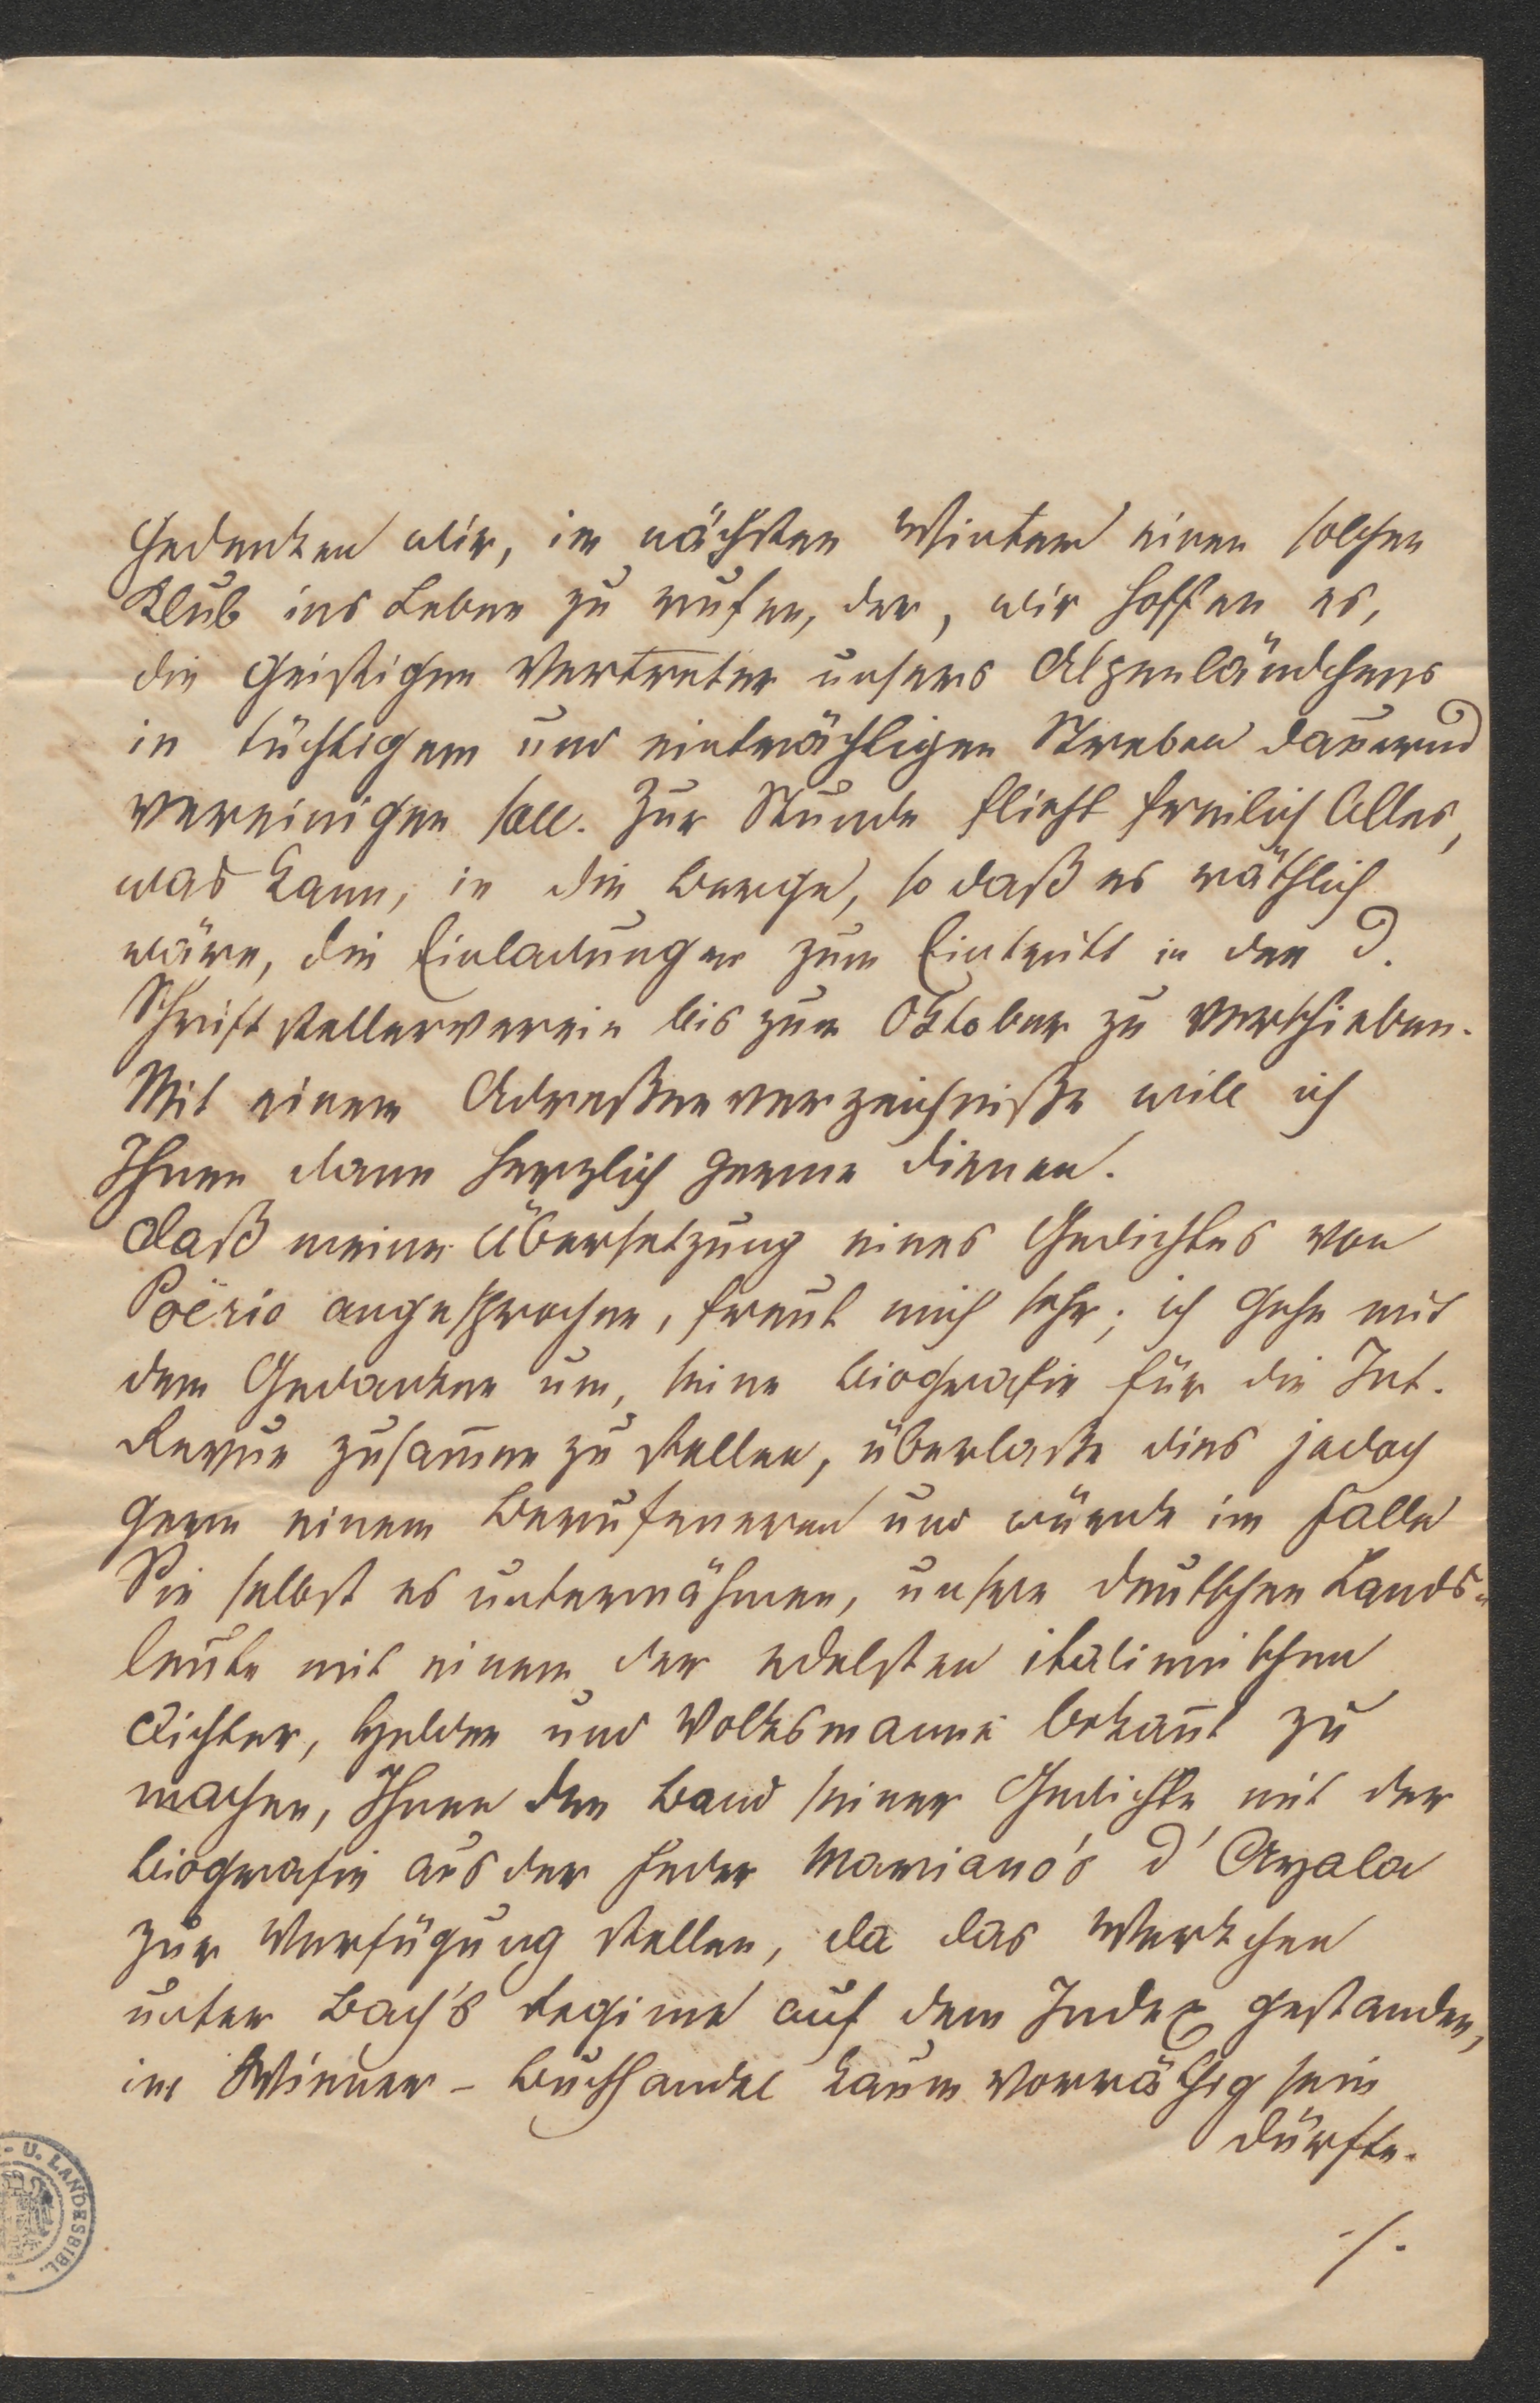 gedenken wir, im nächsten Winter einen solchen
Klub ins Leben zu rufen, der, wir hoffen es,
die geistigen Vertreter unsers Alpenländchens
in tüchtigem und einträchtigen Streben dauernd
vereinigen soll. Zur Stunde flieht freilich Alles,
was kann, in die Berge, so daß es räthlich
wäre, die Einladungen zum Eintritt in den D.
Schriftstellerverein bis zum Oktober zu verschieben.
Mit einem Adreßenverzeichniße will ich
Ihnen dann herzlich gerne dienen.
Daß meine Übersetzung eines Gedichtes von
Poërio angesprochen, freut mich sehr; ich gehe mit
dem Gedanken um, seine Biografie für die Int.
Revue zusam̄en zu stellen, überlaße dies jedoch
gern einem Berufeneren und würde im Falle
Sie selbst es unternähmen, unsere deutschen Lands-
leute mit einem der edelsten italienischen
Dichter, Helden und Volksmanne bekan̄t zu
machen, Ihnen den Band seiner Gedichte mit der
Biografie aus der Feder Mariano's d'Ayala
zur Verfügung stellen, da das Werkchen
unter Bach's Regime auf dem Index gestanden,
im Wiener-Buchhandel kaum vorräthig sein
dürfte.
./.
- U. LANDESBIBL.